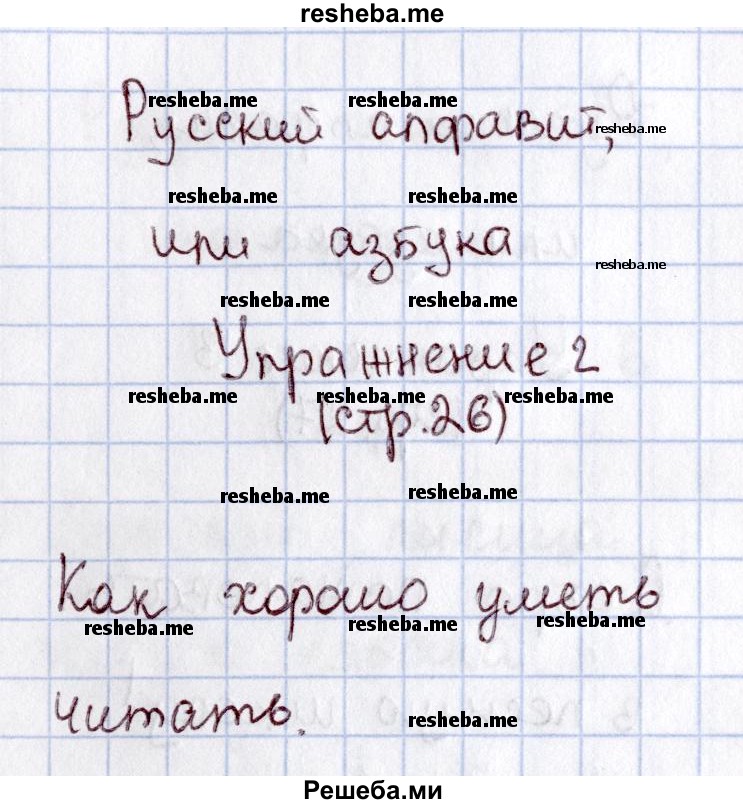 resheba.me
Русский алфавит,
resheba.me resheba.me resheba.me
resheba.me resheba.me
или азбука
resheba.me
resheba.me resheba.me
Упражнение 2
resheba.me resheba.me resheba.me
(стр.26)
resheba.me resheba.me
Как хорошо уметь
resheba.me resheba.me resheba.me
читать.
resheba.me
Решеба.ми